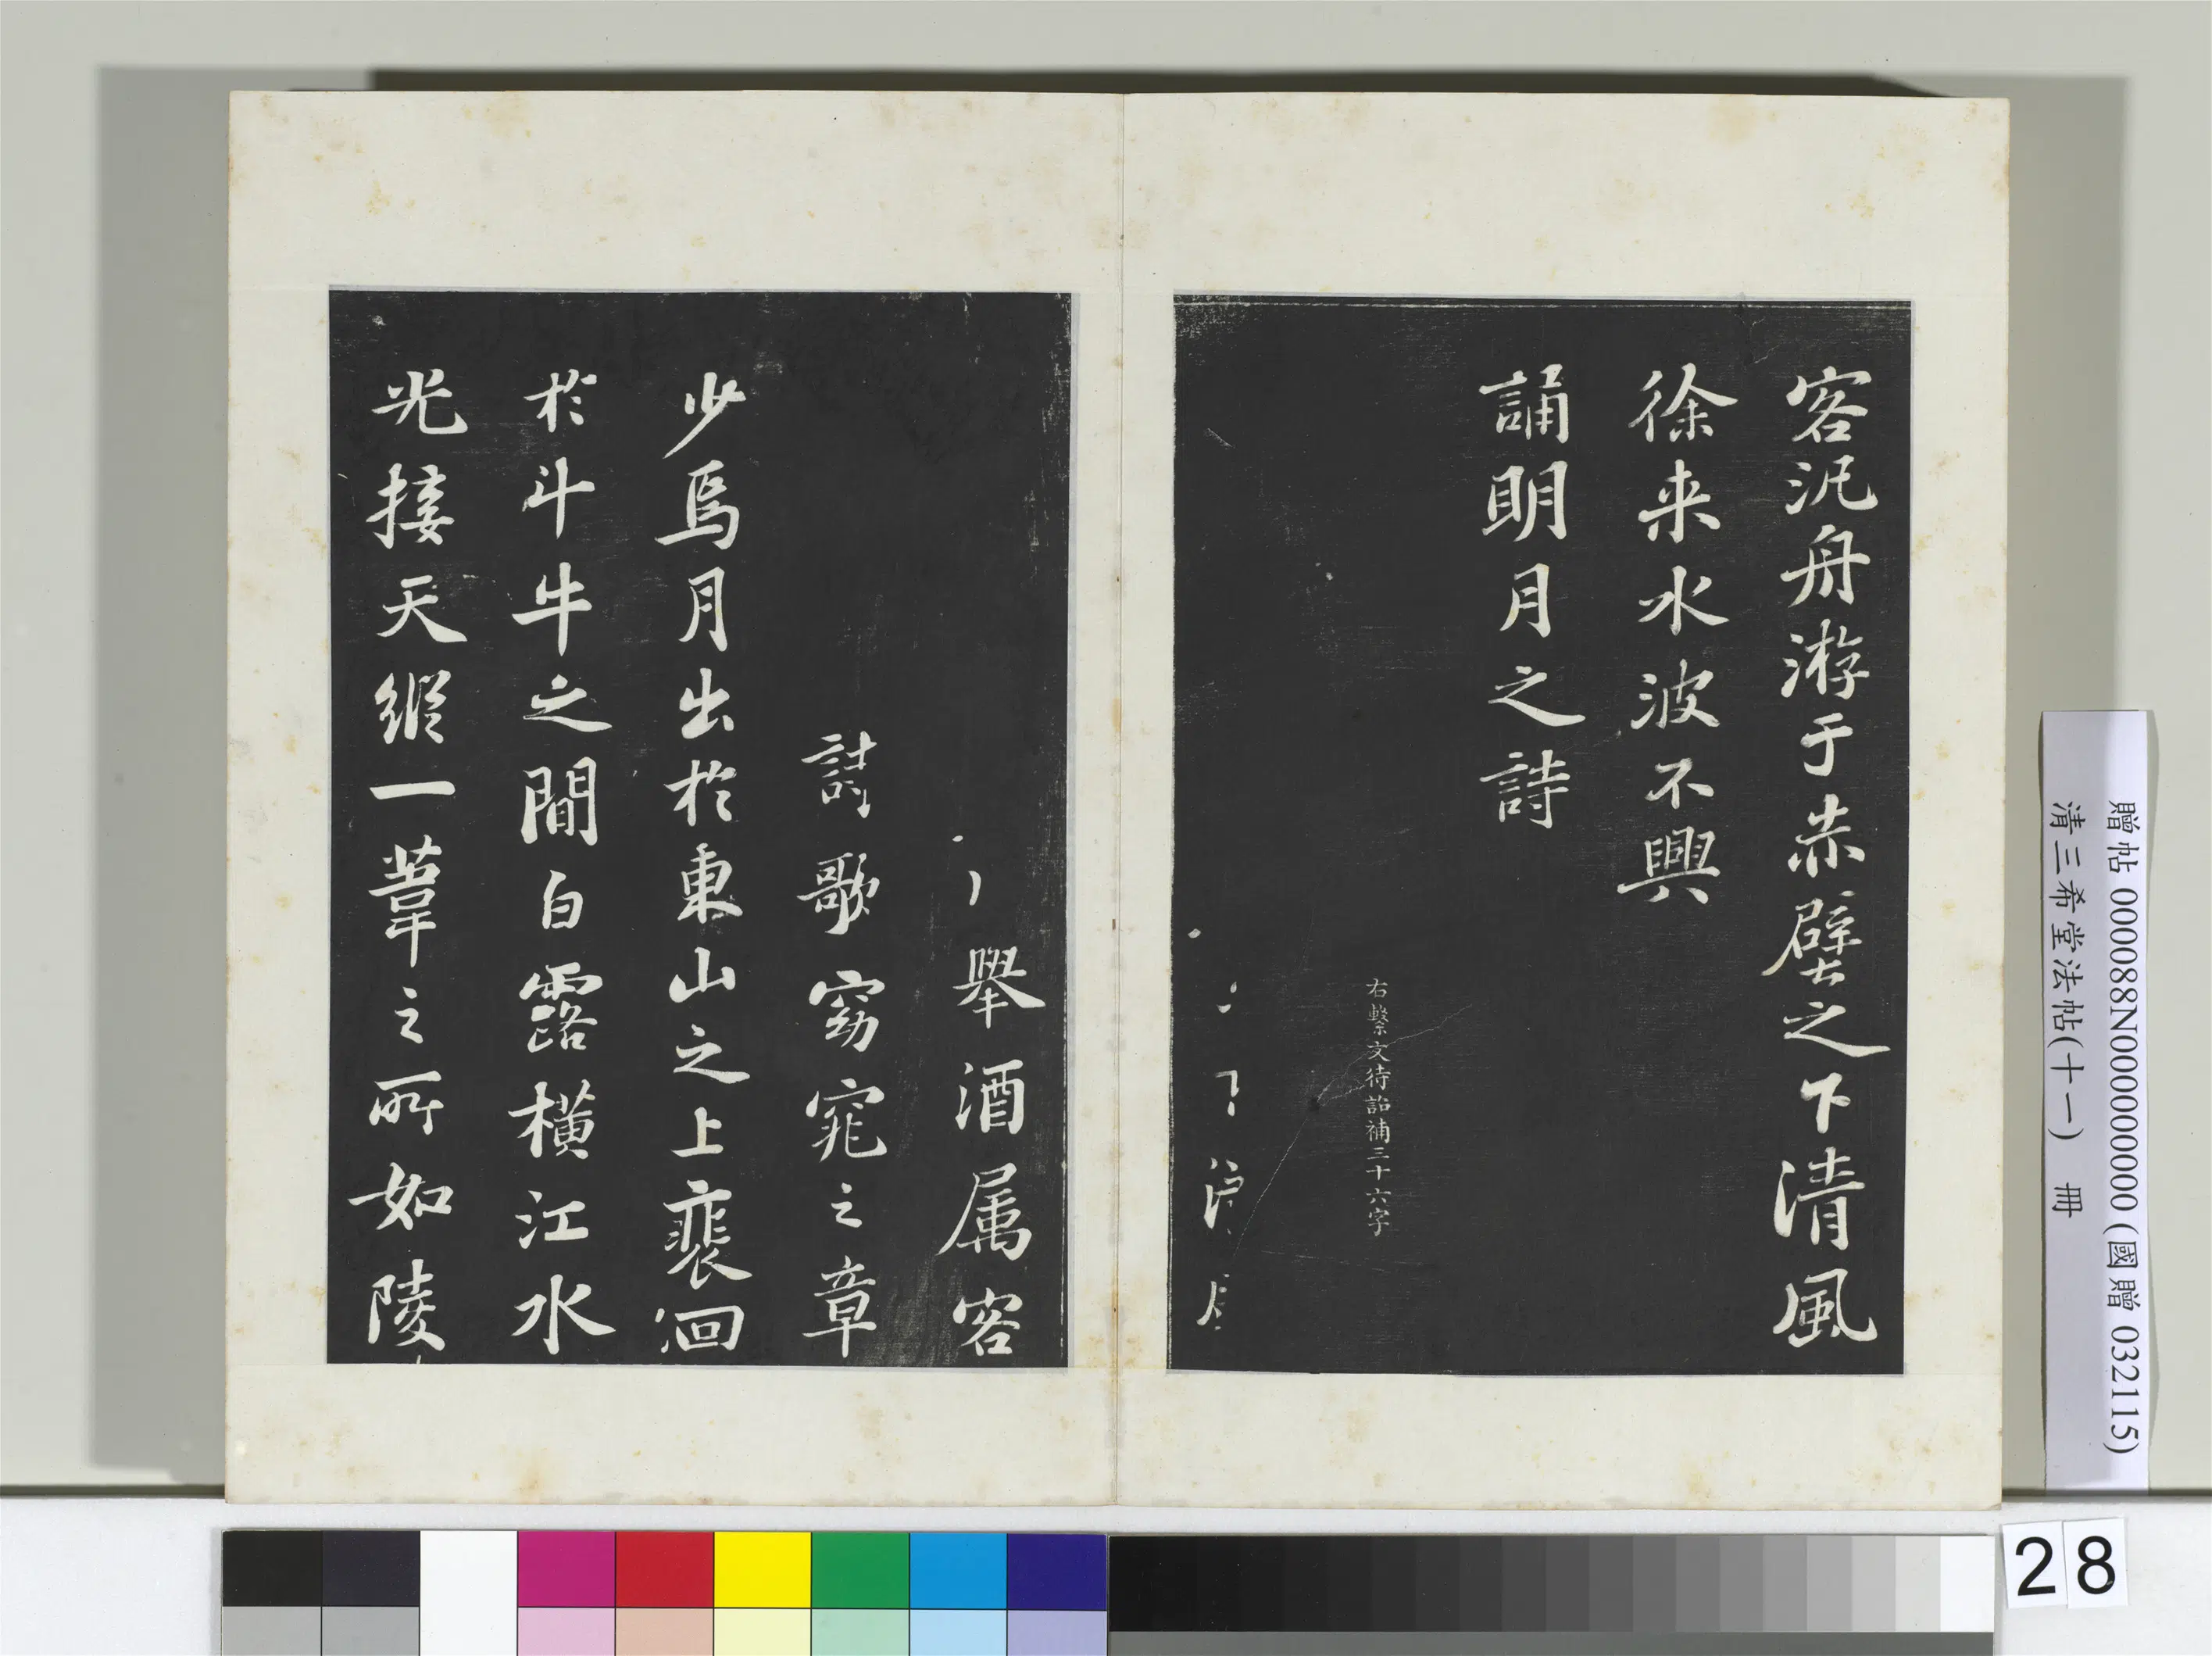 客汎舟游于赤壁之下清風
徐来水波不興
誦明月之詩
右繫文待詔補三十六字
舉酒属客
歌窈窕之章
少焉月出於東山之上裴徊
於斗牛之間白露橫江水
光接天縱一葦之所如陵
贈帖 000088N000000000 (國贈 032115)
清三希堂法帖(十一) 冊
28